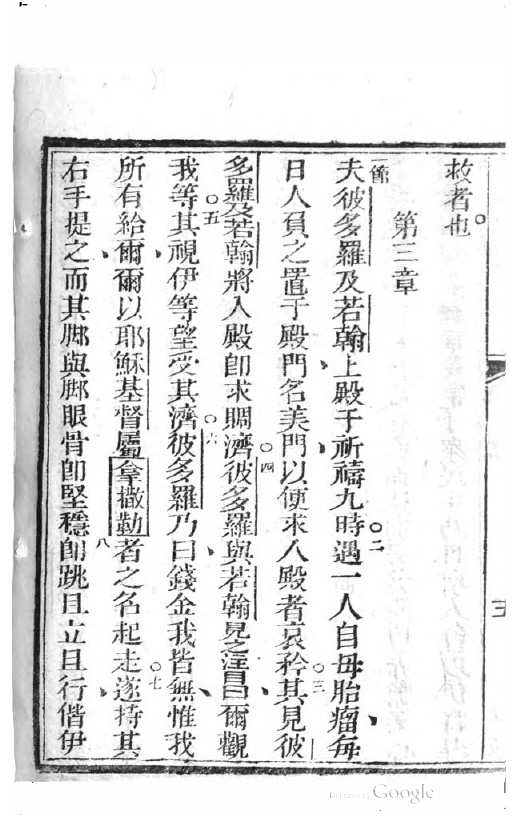 救者也。
第三章
一節夫彼多羅及若翰上殿于祈禱九時。二遇一人自母胎瘤、每
日人負之置于殿門、名美門、以便求入殿者哀矜其。三見彼
多羅及若翰將入殿卽求賙濟。四彼多羅與若翰見之注目曰、爾觀
我等。五其視伊等、望受其濟。六彼多羅乃曰、錢金我皆無、惟我
所有給爾、爾以耶穌基督
拿撒勒者之名起走。七遂持其
右手提之、而其脚與脚眼骨卽堅穩。八卽跳且立且行、偕伊
五
Digitized by Google